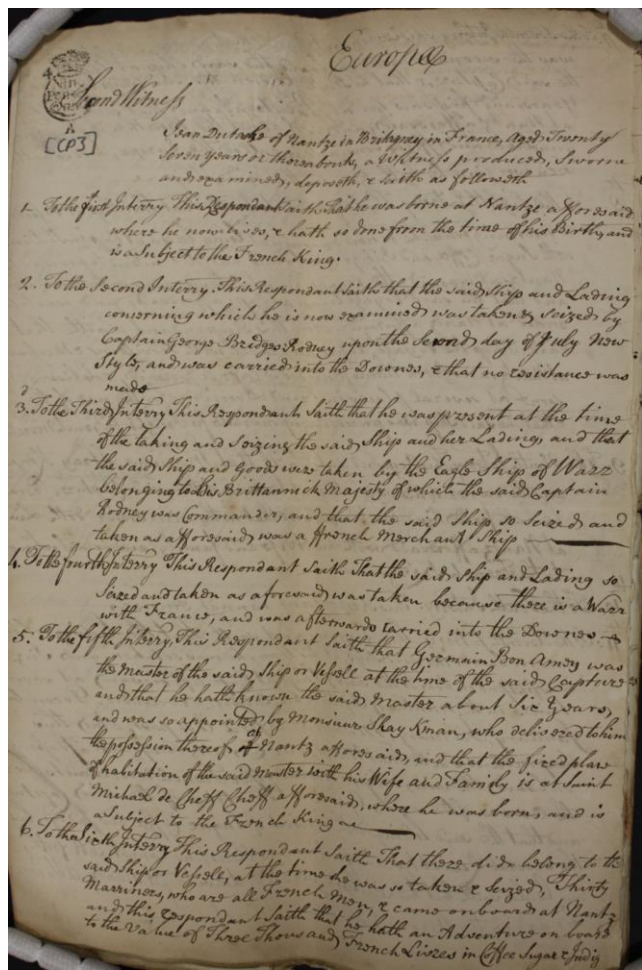 Europa
Second Witness
[CP3]
Jean Dutache of Nantz in Britagney in France, Aged Twenty
Seven Years or thereabouts, a Witness produced, Sworne
and examined, deposeth, & saith as followeth
1. To the first Interry This Respondant saith that he was borne at Nantze afforesaid
where he now lives, & hath so done from the time of his Birth, and
is a Subject to the French King.
2. To the Second Interry. This Respondant saith that the said Ship and Lading
concerning which he is now examined was taken & seized by
Captain George Bridges Rodney upon the Second day of July New
Style, and was carried into the Downes, & that no resistance was
made
3. To the Third Interry This Respondant Saith that he was present at the time
of the taking and Seizing the said Ship and her Lading, and that
the said Ship and Goods were taken by the Eagle Ship of Warr
belonging to his Brittannick Majesty of which the said Captain
Rodney was Commander, and that the said Ship so Seized and
taken as afforesaid was a ffrench Merchant Ship
4. To the fourth Interry This Respondant Saith That the said Ship and Lading so
Seized and taken as aforesaid was taken because there is a Warr
with France, and was afterwards carried into the Downes
5. To the fifth Interry, This Respondant Saith that Germain Bon Amey was
the Master of the said Ship or Vessell at the time of the said Capture
and that he hath known the said Master about Six Years,
and was so appointed by Monsieur Shaykman, who delivered to him
the possession thereof at Nantz afforesaid, and that the fixed place
of habitation of the said Master with his Wife and Family is at Saint
Michael de Cheff Cheff afforesaid, where he was born, and is
a Subject to the French King
6. To the Sixth Interry This Respondant Saith That there did belong to the
said Ship or Vessell, at the time she was so taken & Seized, Thirty
Marriners, who are all French Men, & came onboard at Nantz
and this respondant Saith that he hath an Adventure on board
to the value of Three Thousand French Livres in Coffee Sugar & Indig